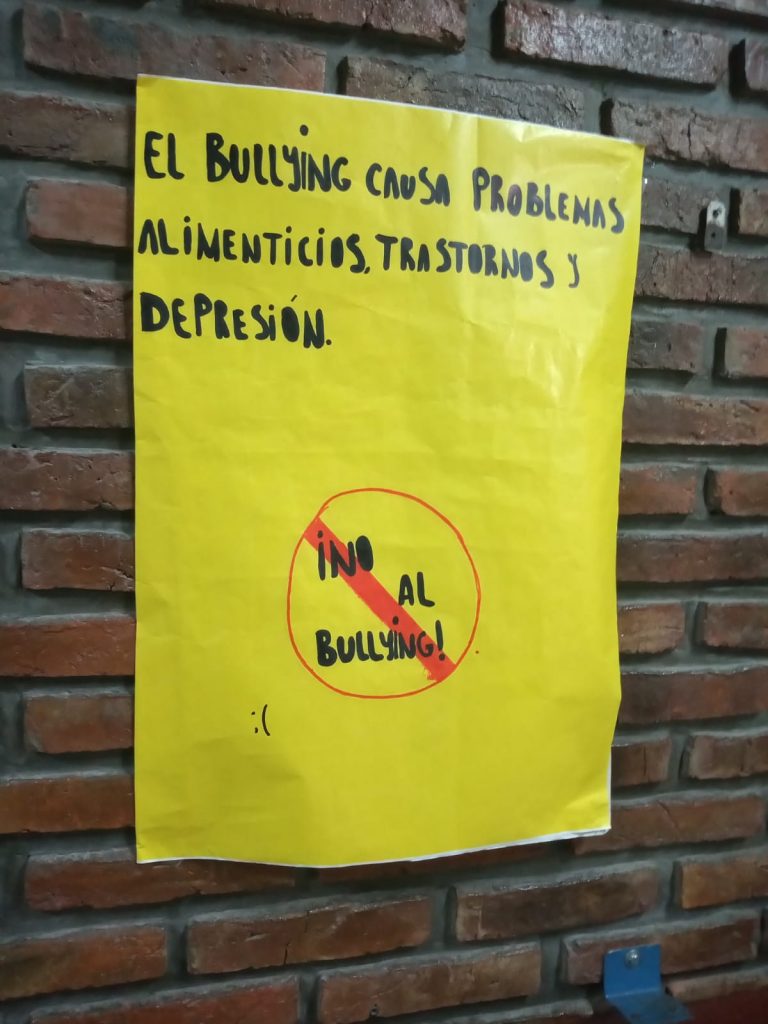 EL BULLYING CAUSA PROBLEMAS
ALIMENTICIOS, TRASTORNOS Y
DEPRESIÓN.
¡NO
AL
BULLYING!
;(